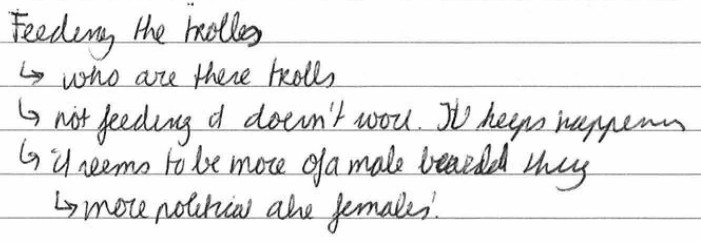 Feeding the trolls
↳ who are these trolls
↳ not feeding it doesn't work. It keeps happening
↳ it seems to be more of a male thing
↳ more political are females.